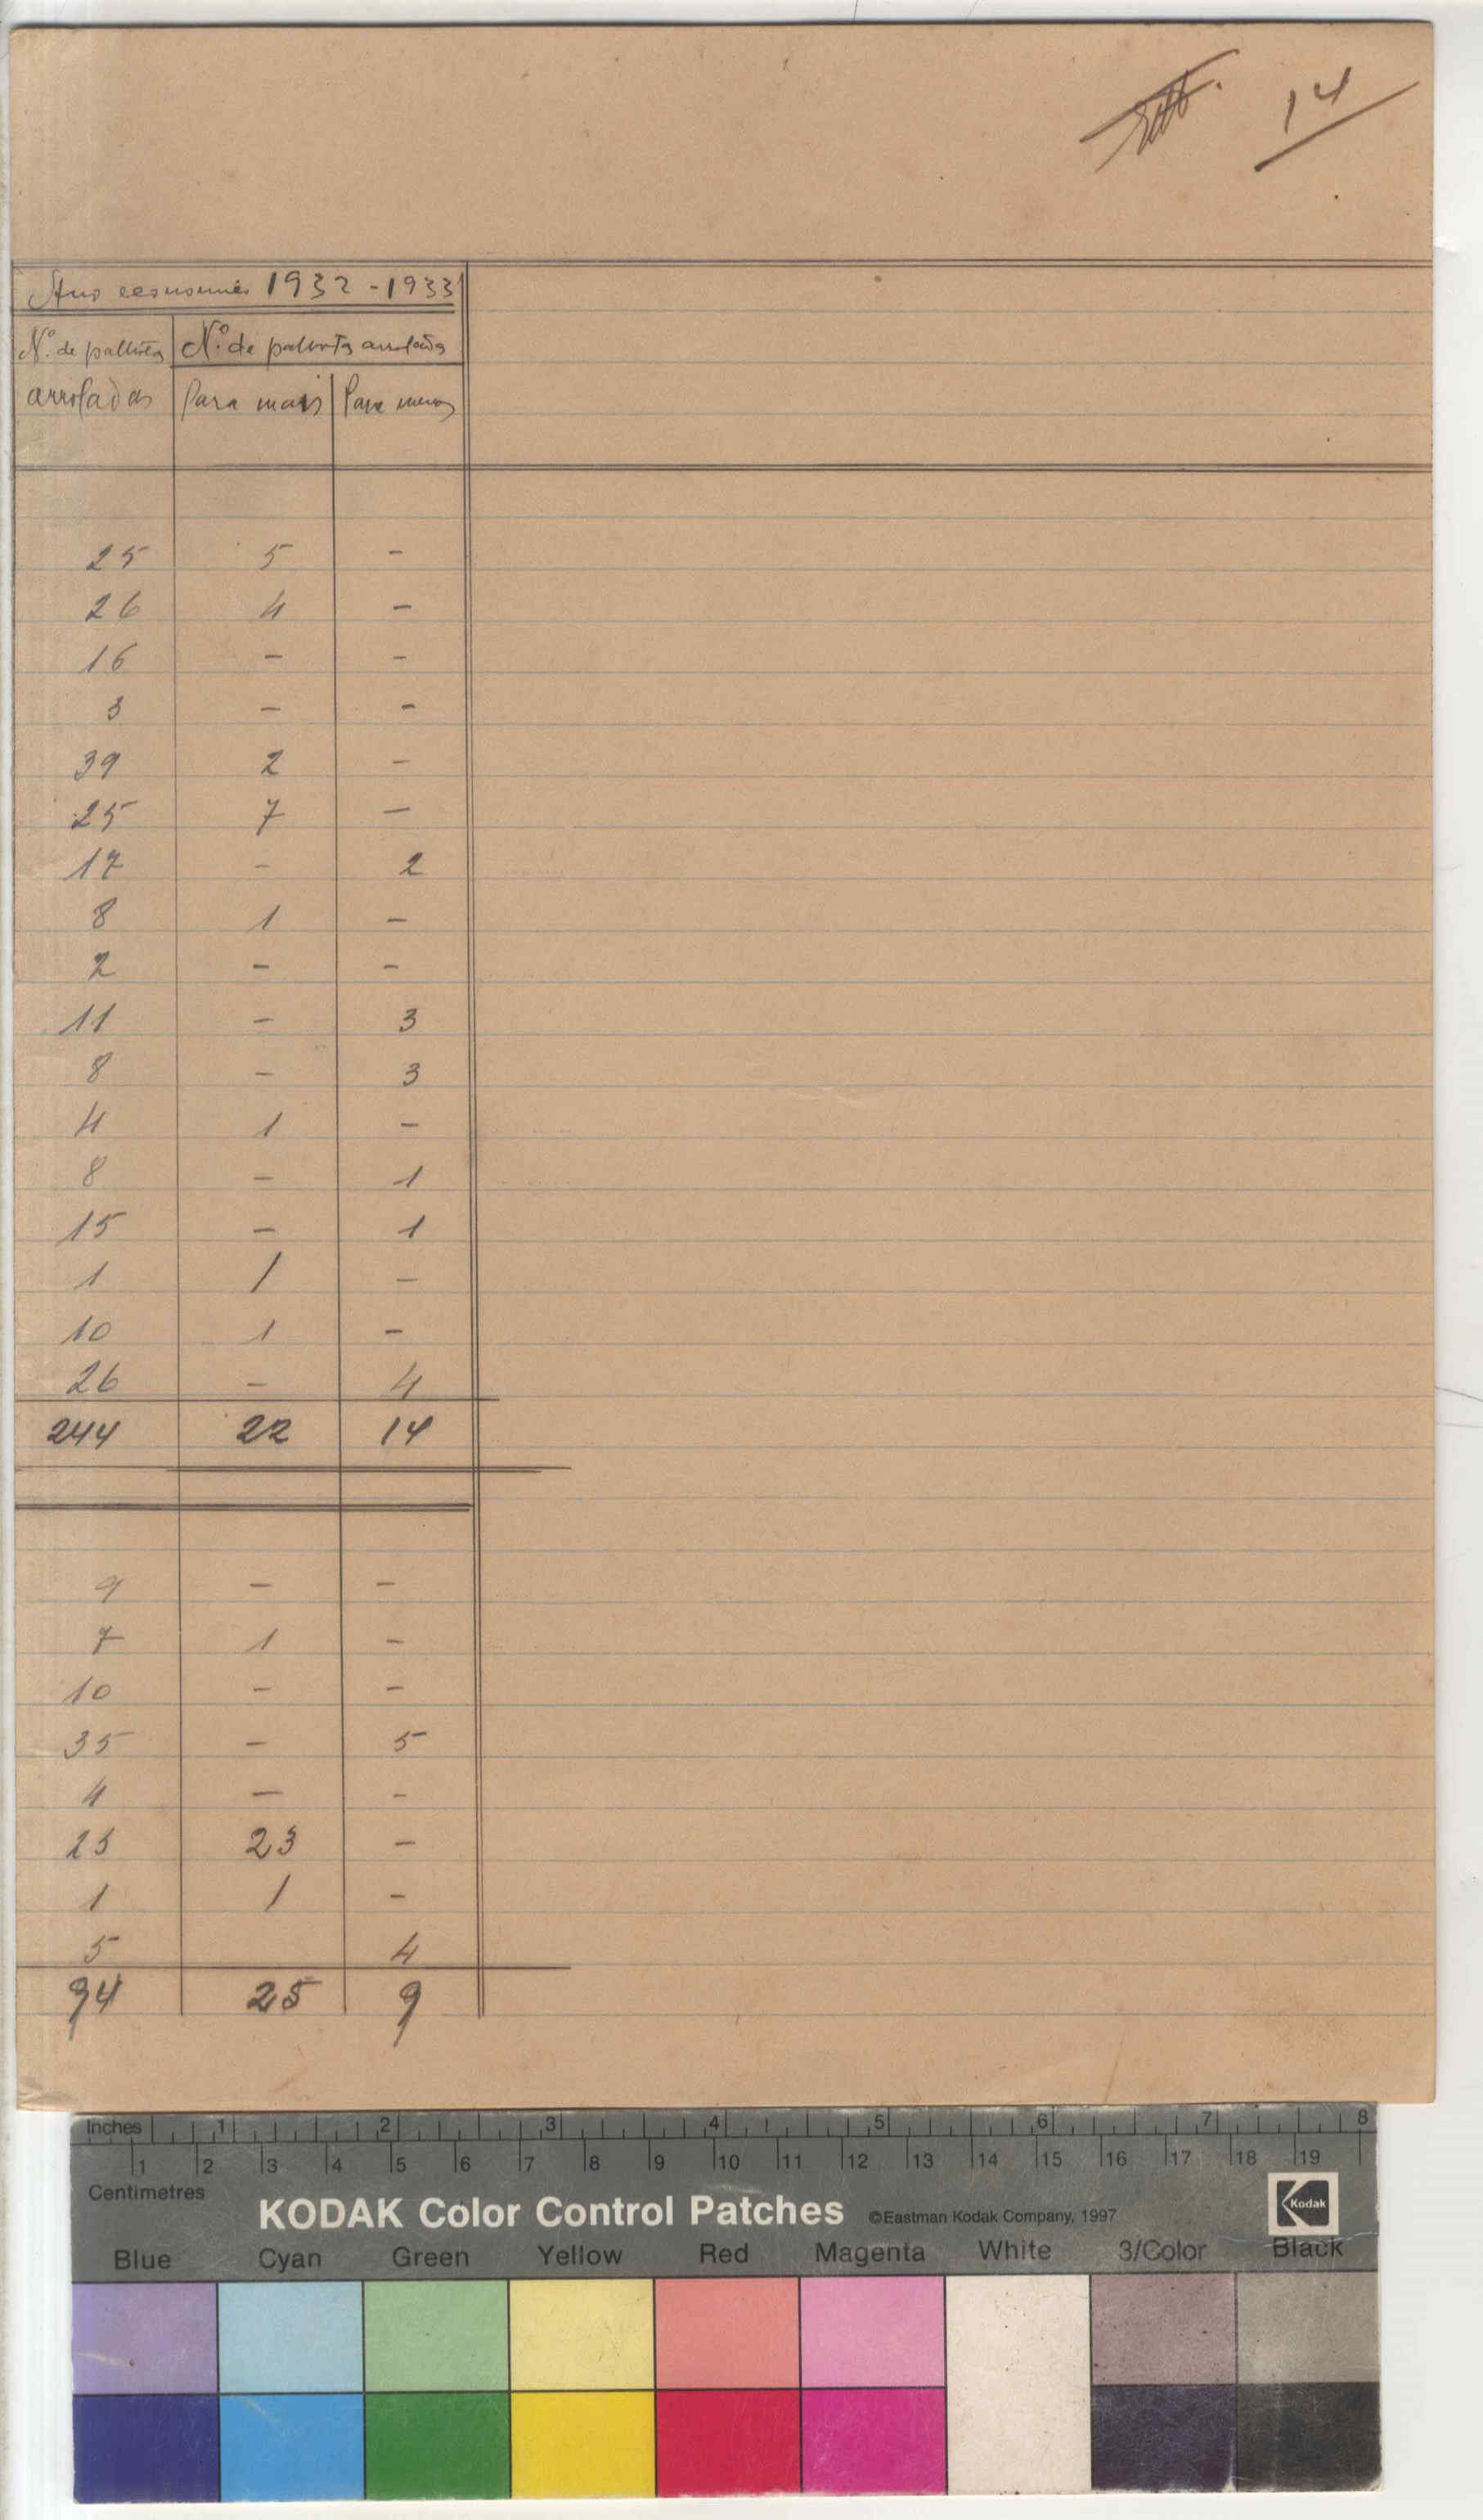 14
Ano economico 1932 - 1933
N.º de palhotas N.º de palhotas arroladas
arroladas Para mais Para menos
25 5 -
26 4 -
16 - -
3 - -
39 2 -
25 7 -
17 - 2
8 1 -
2 - -
11 - 3
8 - 3
4 1 -
8 - 1
15 - 1
1 1 -
10 1 -
26 - 4
244 22 14
9 - -
7 1 -
10 - -
35 - 5
4 - -
23 23 -
1 1 -
5 4
94 25 9
Inches 1 2 3 4 5 6 7 8
1 2 3 4 5 6 7 8 9 10 11 12 13 14 15 16 17 18 19
Centimetres
KODAK Color Control Patches ©Eastman Kodak Company, 1997 Kodak
Blue Cyan Green Yellow Red Magenta White 3/Color Black